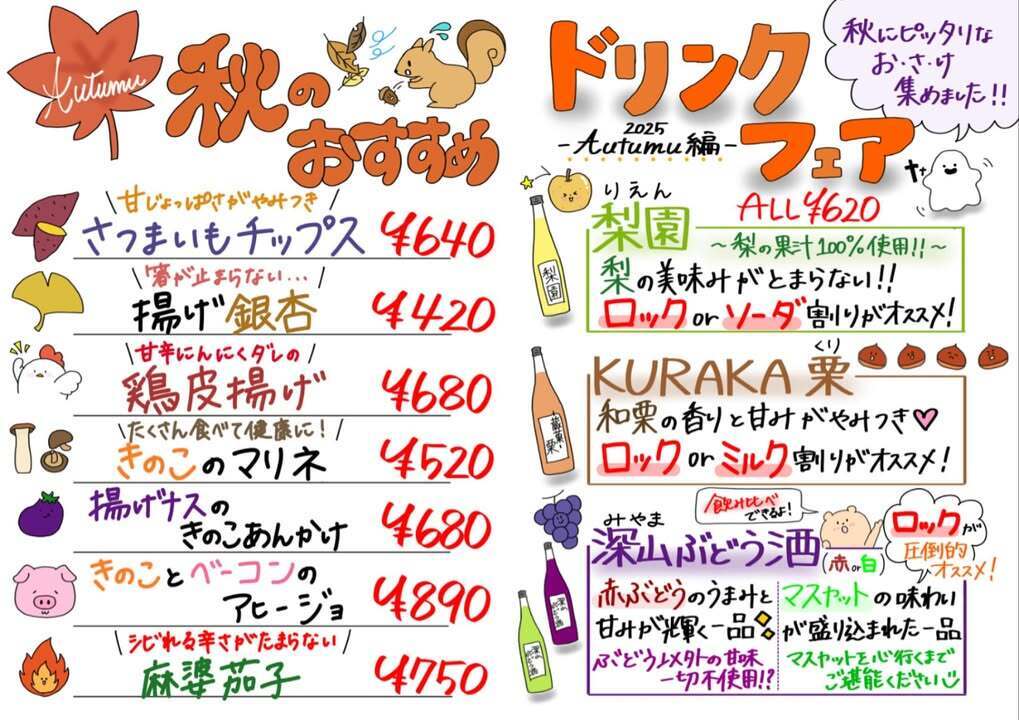 Autumu
秋の
おすすめ
甘じょっぱさがやみつき
さつまいもチップス ¥640
箸が止まらない...
揚げ銀杏 ¥420
甘辛にんにくダレの
鶏皮揚げ ¥680
たくさん食べて健康に!
きのこのマリネ ¥520
揚げナスの
きのこあんかけ ¥680
きのことベーコンの
アヒージョ ¥890
シビれる辛さがたまらない
麻婆茄子 ¥750
ドリンク
フェア
2025
-Autumu編-
秋にピッタリな
お・さ・け
集めました!!
ALL ¥620
りえん
梨園
~梨の果汁100%使用!!~
梨の美味みがとまらない!!
ロック or ソーダ割りがオススメ!
梨園
くり
KURAKA 栗
和栗の香りと甘みがやみつき♡
ロック or ミルク割りがオススメ!
みやま
深山ぶどう酒
(赤 or 白)
飲み比べ
できるよ!
ロックが
圧倒的
オススメ!
赤ぶどうのうまみと
甘みが輝く一品
ぶどう以外の甘味
一切不使用!?
マスカットの味わい
が盛り込まれた一品
マスカットを心行くまで
ご堪能ください